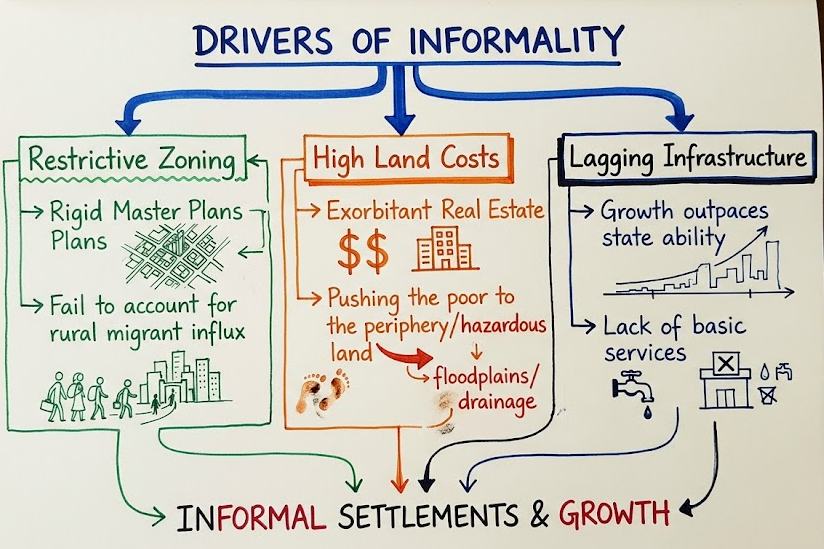 DRIVERS OF INFORMALITY
Restrictive Zoning
Rigid Master Plans
Plans
Fail to account for
rural migrant influx
High Land Costs
Exorbitant Real Estate
$$
Pushing the poor to
the periphery/hazardous
land
floodplains/
drainage
Lagging Infrastructure
Growth outpaces
state ability
Lack of basic
services
INFORMAL SETTLEMENTS & GROWTH